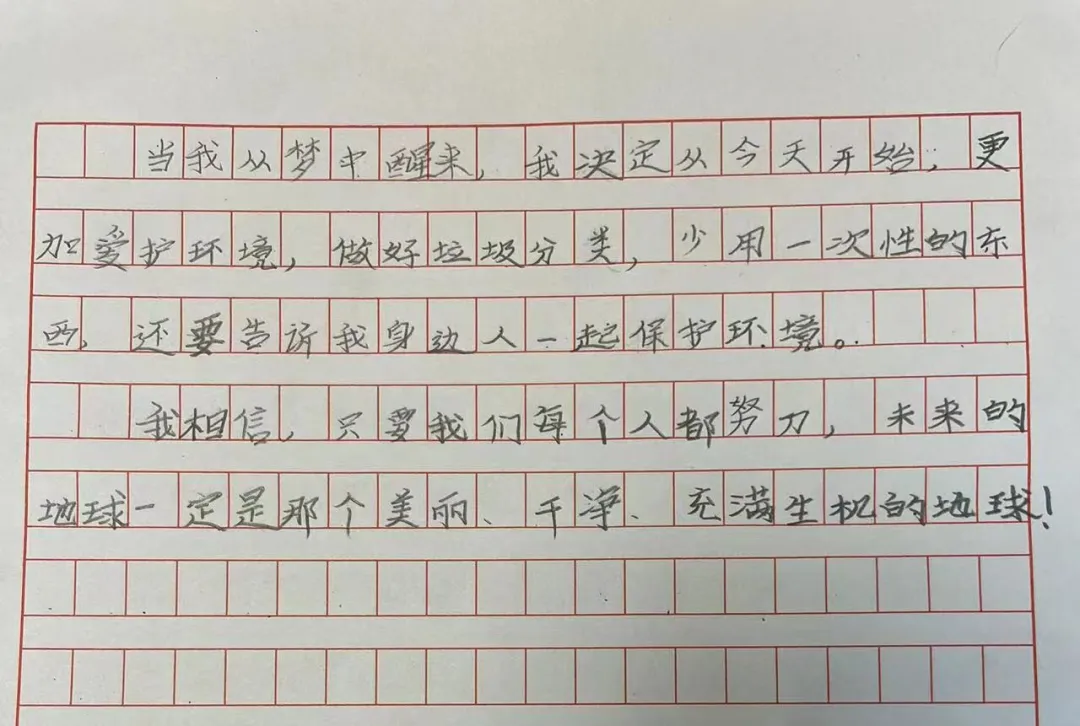 当我从梦中醒来，我决定从今天开始，更
加爱护环境，做好垃圾分类，少用一次性的东
西，还要告诉我身边人一起保护环境。
我相信，只要我们每个人都努力，未来的
地球一定是那个美丽、干净、充满生机的地球！